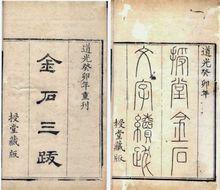 道光癸卯年重刊
金石三跋
授堂藏版
道光癸卯年
授堂金石
文字續跋
授堂藏版